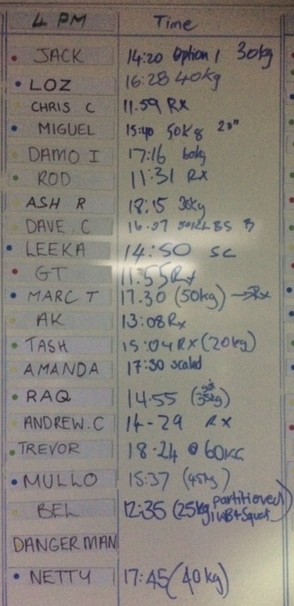 4 PM Time
JACK 14:20 Option 1 30kg
LOZ 16:28 40kg
CHRIS C 11.59 Rx
MIGUEL 15:40 50kg 20"
DAMO I 17:16 60kg
ROD 11:31 Rx
ASH R 18:15 30kg
DAVE.C 16.07 BS
LEEKA 14:50 SC
GT 11:55 Rx
MARC T 17.30 (50kg) →Rx
AK 13:08 Rx
TASH 15:04 Rx (20kg)
AMANDA 17:30 scaled
RAQ 14.55 (35kg)
ANDREW.C 14-29 Rx
TREVOR 18.24 @ 60KG
MULLO 15:37 (45kg)
BEL 12:35 (25kg partitioned)
DANGERMAN
NETTY 17:45 (40kg)